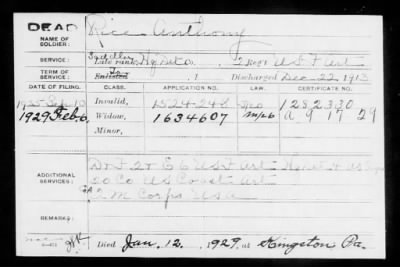 DEAD
NAME OF SOLDIER:
Rice Anthony
SERVICE:
Saddler
Late rank,
2 Regt U S F Art
TERM OF SERVICE:
Enlisted
, 1
Discharged Dec 22, 1913
DATE OF FILING. CLASS. APPLICATION NO. LAW. CERTIFICATE NO.
1925 Sep 10 Invalid, 1524248 1282330
1929 Feb. 6, Widow, 1634607 A 9 17 29
Minor,
ADDITIONAL SERVICES:
E 6 U S F Art
20 Co US Coast Art
Q M Corps USA
REMARKS:
Died Jan. 12, 1929, at Kingston Pa.